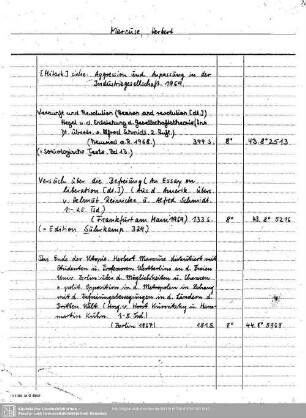 Marcuse, Herbert
[Mitarb.] siehe: Aggression und Anpassung in der
Industriegesellschaft. 1969.
Vernunft und Revolution (Reason and revolution [dt.])
Hegel u. d. Entstehung d. Gesellschaftstheorie (Ins
Dt. übertr. v. Alfred Schmidt. 2. Aufl.)
(Neuwied a.R. 1968.) 399 S. 8° 43. 8° 2513
(= Soziologische Texte. Bd 13.)
Versuch über die Befreiung (An Essay on
liberation [dt.]) (Aus d. Amerik. übers.
v. Helmut Reinicke u. Alfred Schmidt.
(Frankfurt am Main 1969) 133 S. 8° 43. 8° 5216
(= Edition Suhrkamp. 329)
Das Ende der Utopie. Herbert Marcuse diskutiert mit
Studenten u. Professoren Westberlins an d. Freien
Univ. Berlin über d. Möglichkeiten u. Chancen
e. polit. Opposition in d. Metropolen in Zshang
mit d. Befreiungsbewegungen in d. Ländern d.
Dritten Welt (Hrsg. v. Horst Kurnitzky u. Hans-
martin Kuhn.
(Berlin 1967) 151 S. 8° 44. 8° 5368